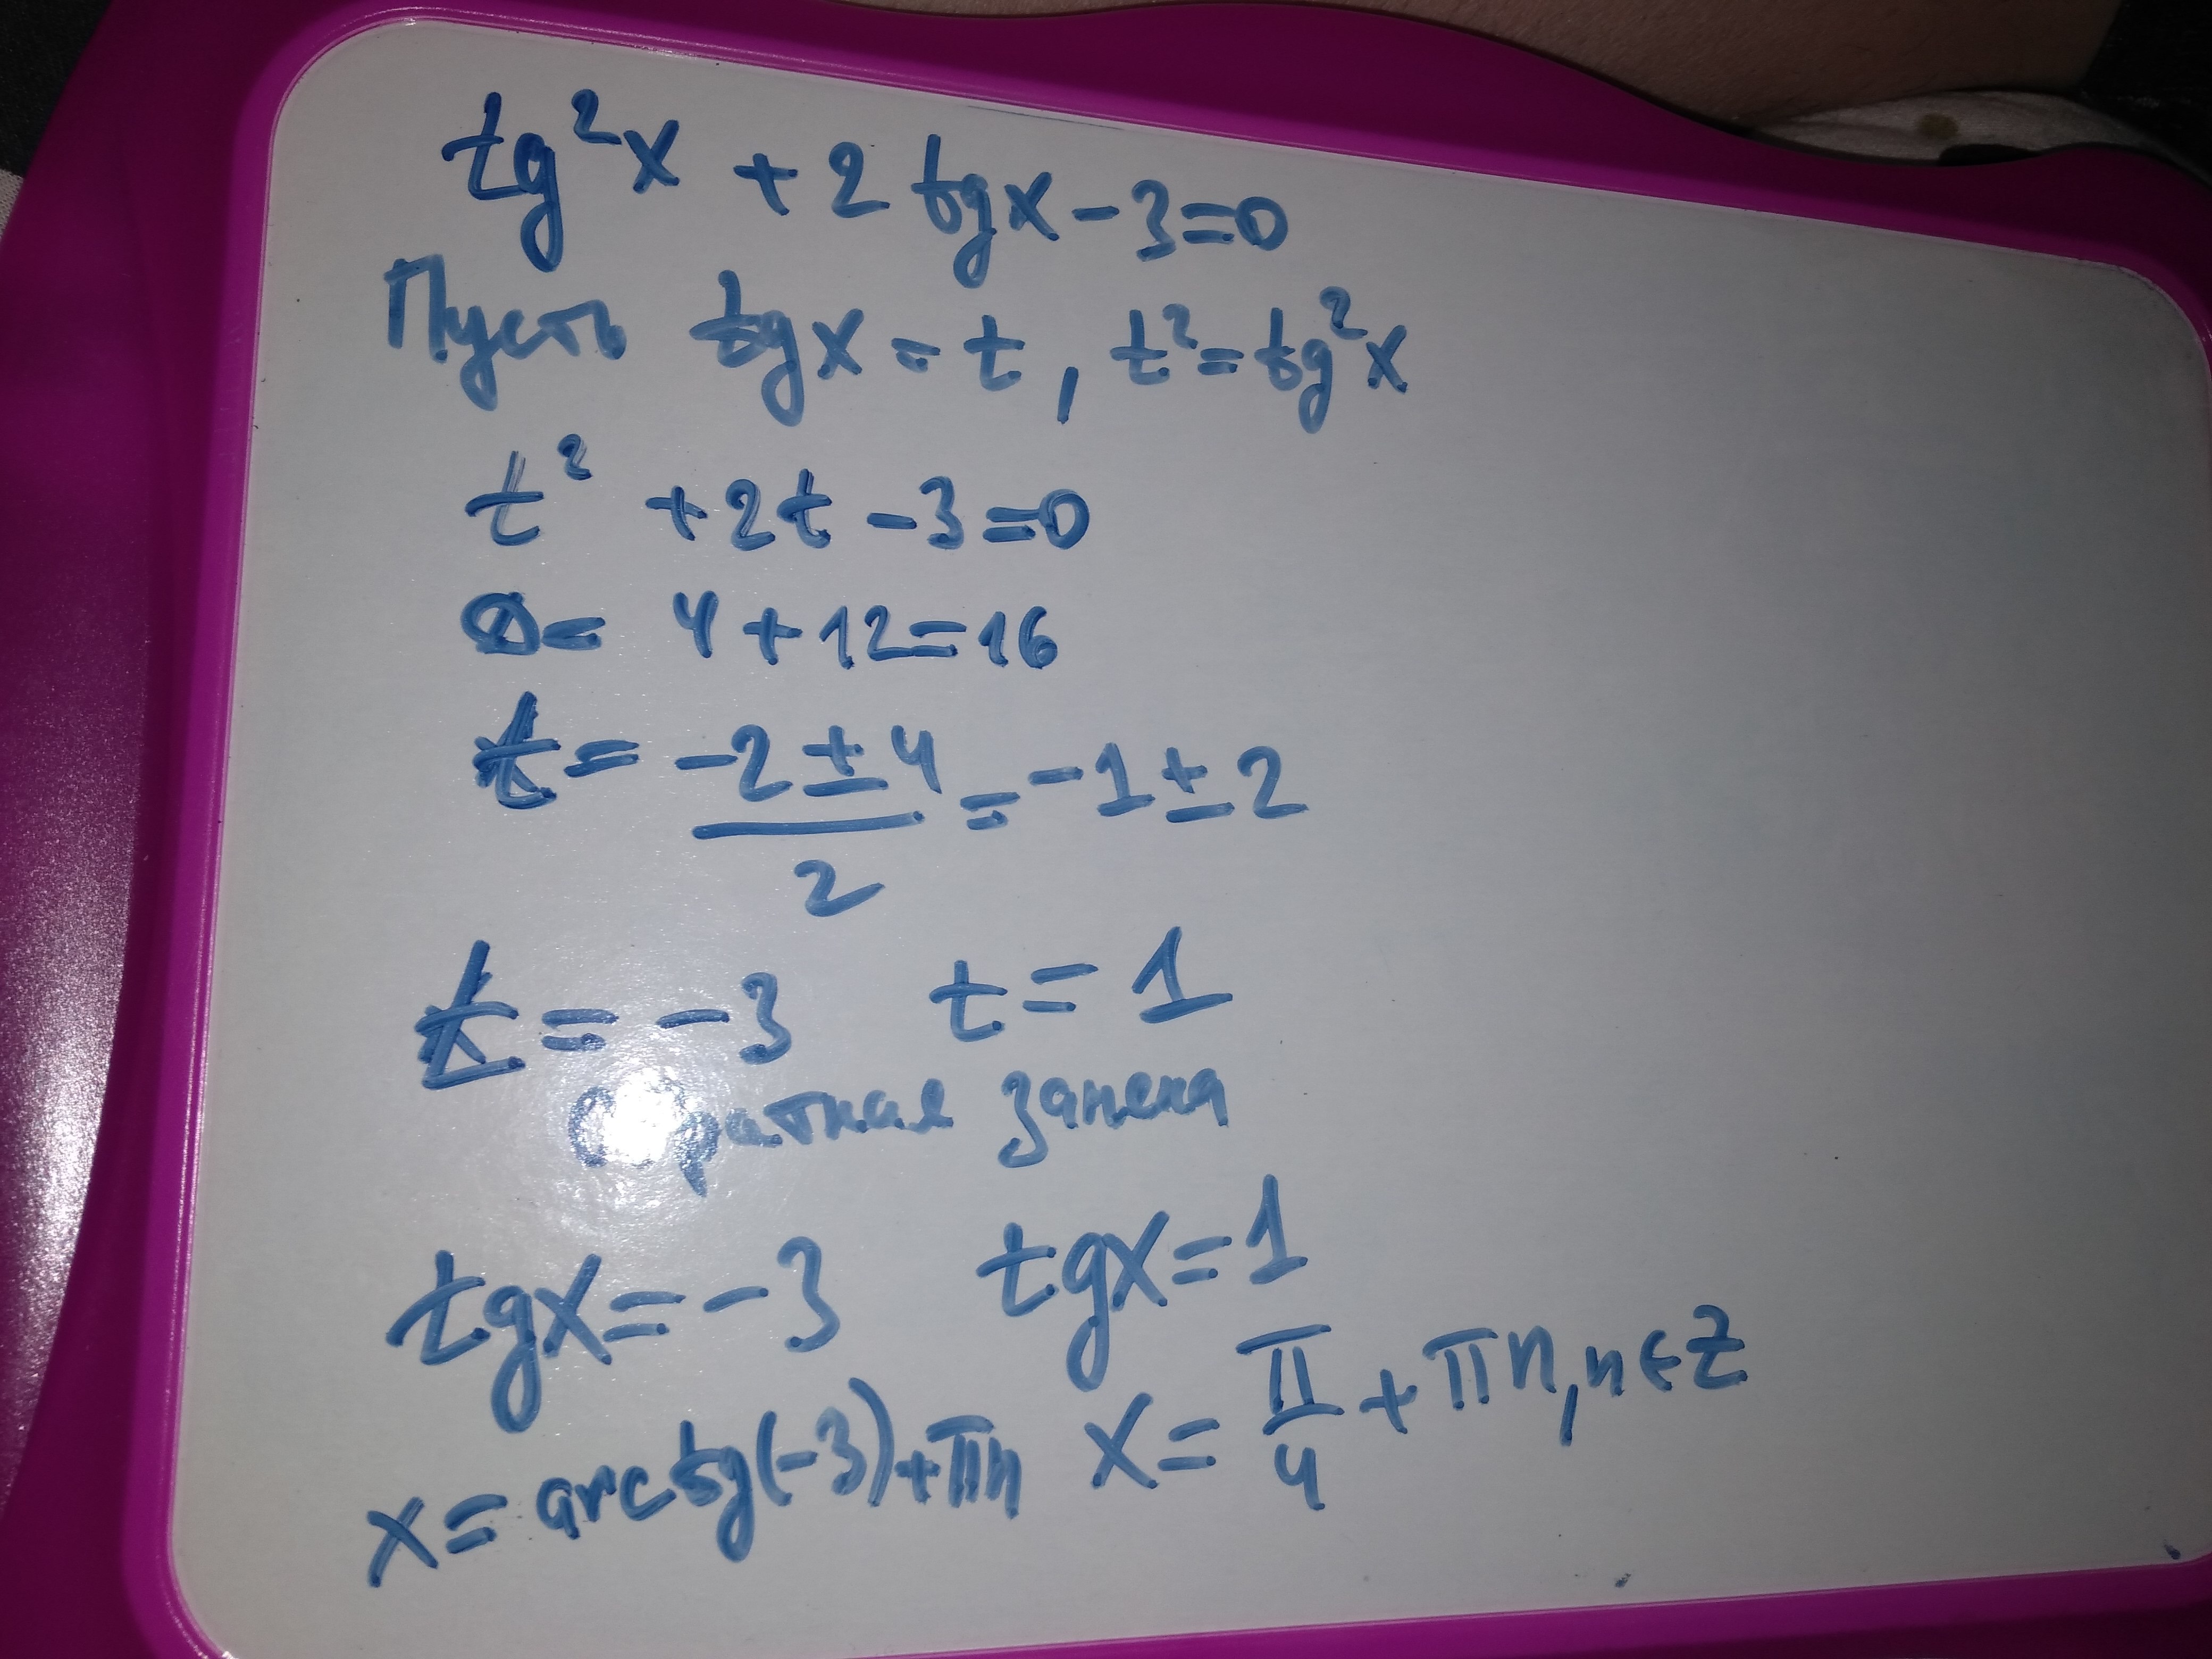 tg²x + 2 tgx - 3 = 0
Пусть tgx = t, t² = tg²x
t² + 2t - 3 = 0
D = 4 + 12 = 16
t = (-2 ± 4)/2 = -1 ± 2
t = -3 t = 1
Обратная замена
tgx = -3 tgx = 1
x = arctg(-3) + πn x = π/4 + πn, n ∈ Z